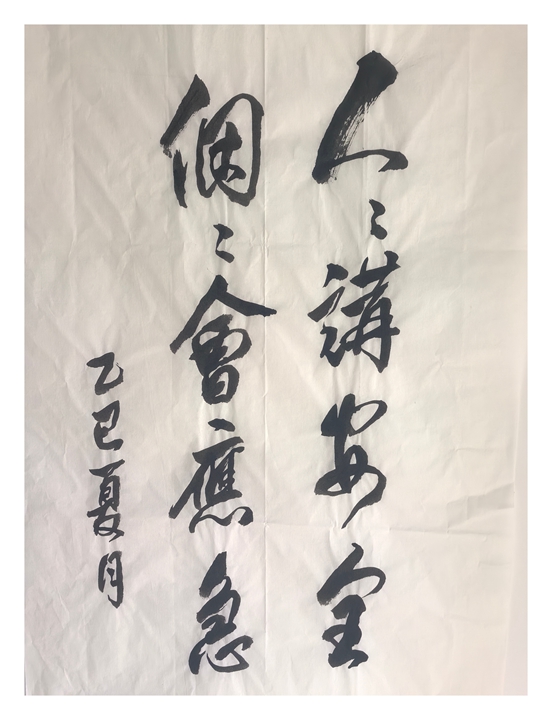 人々講安全
個々會應急
乙巳夏月